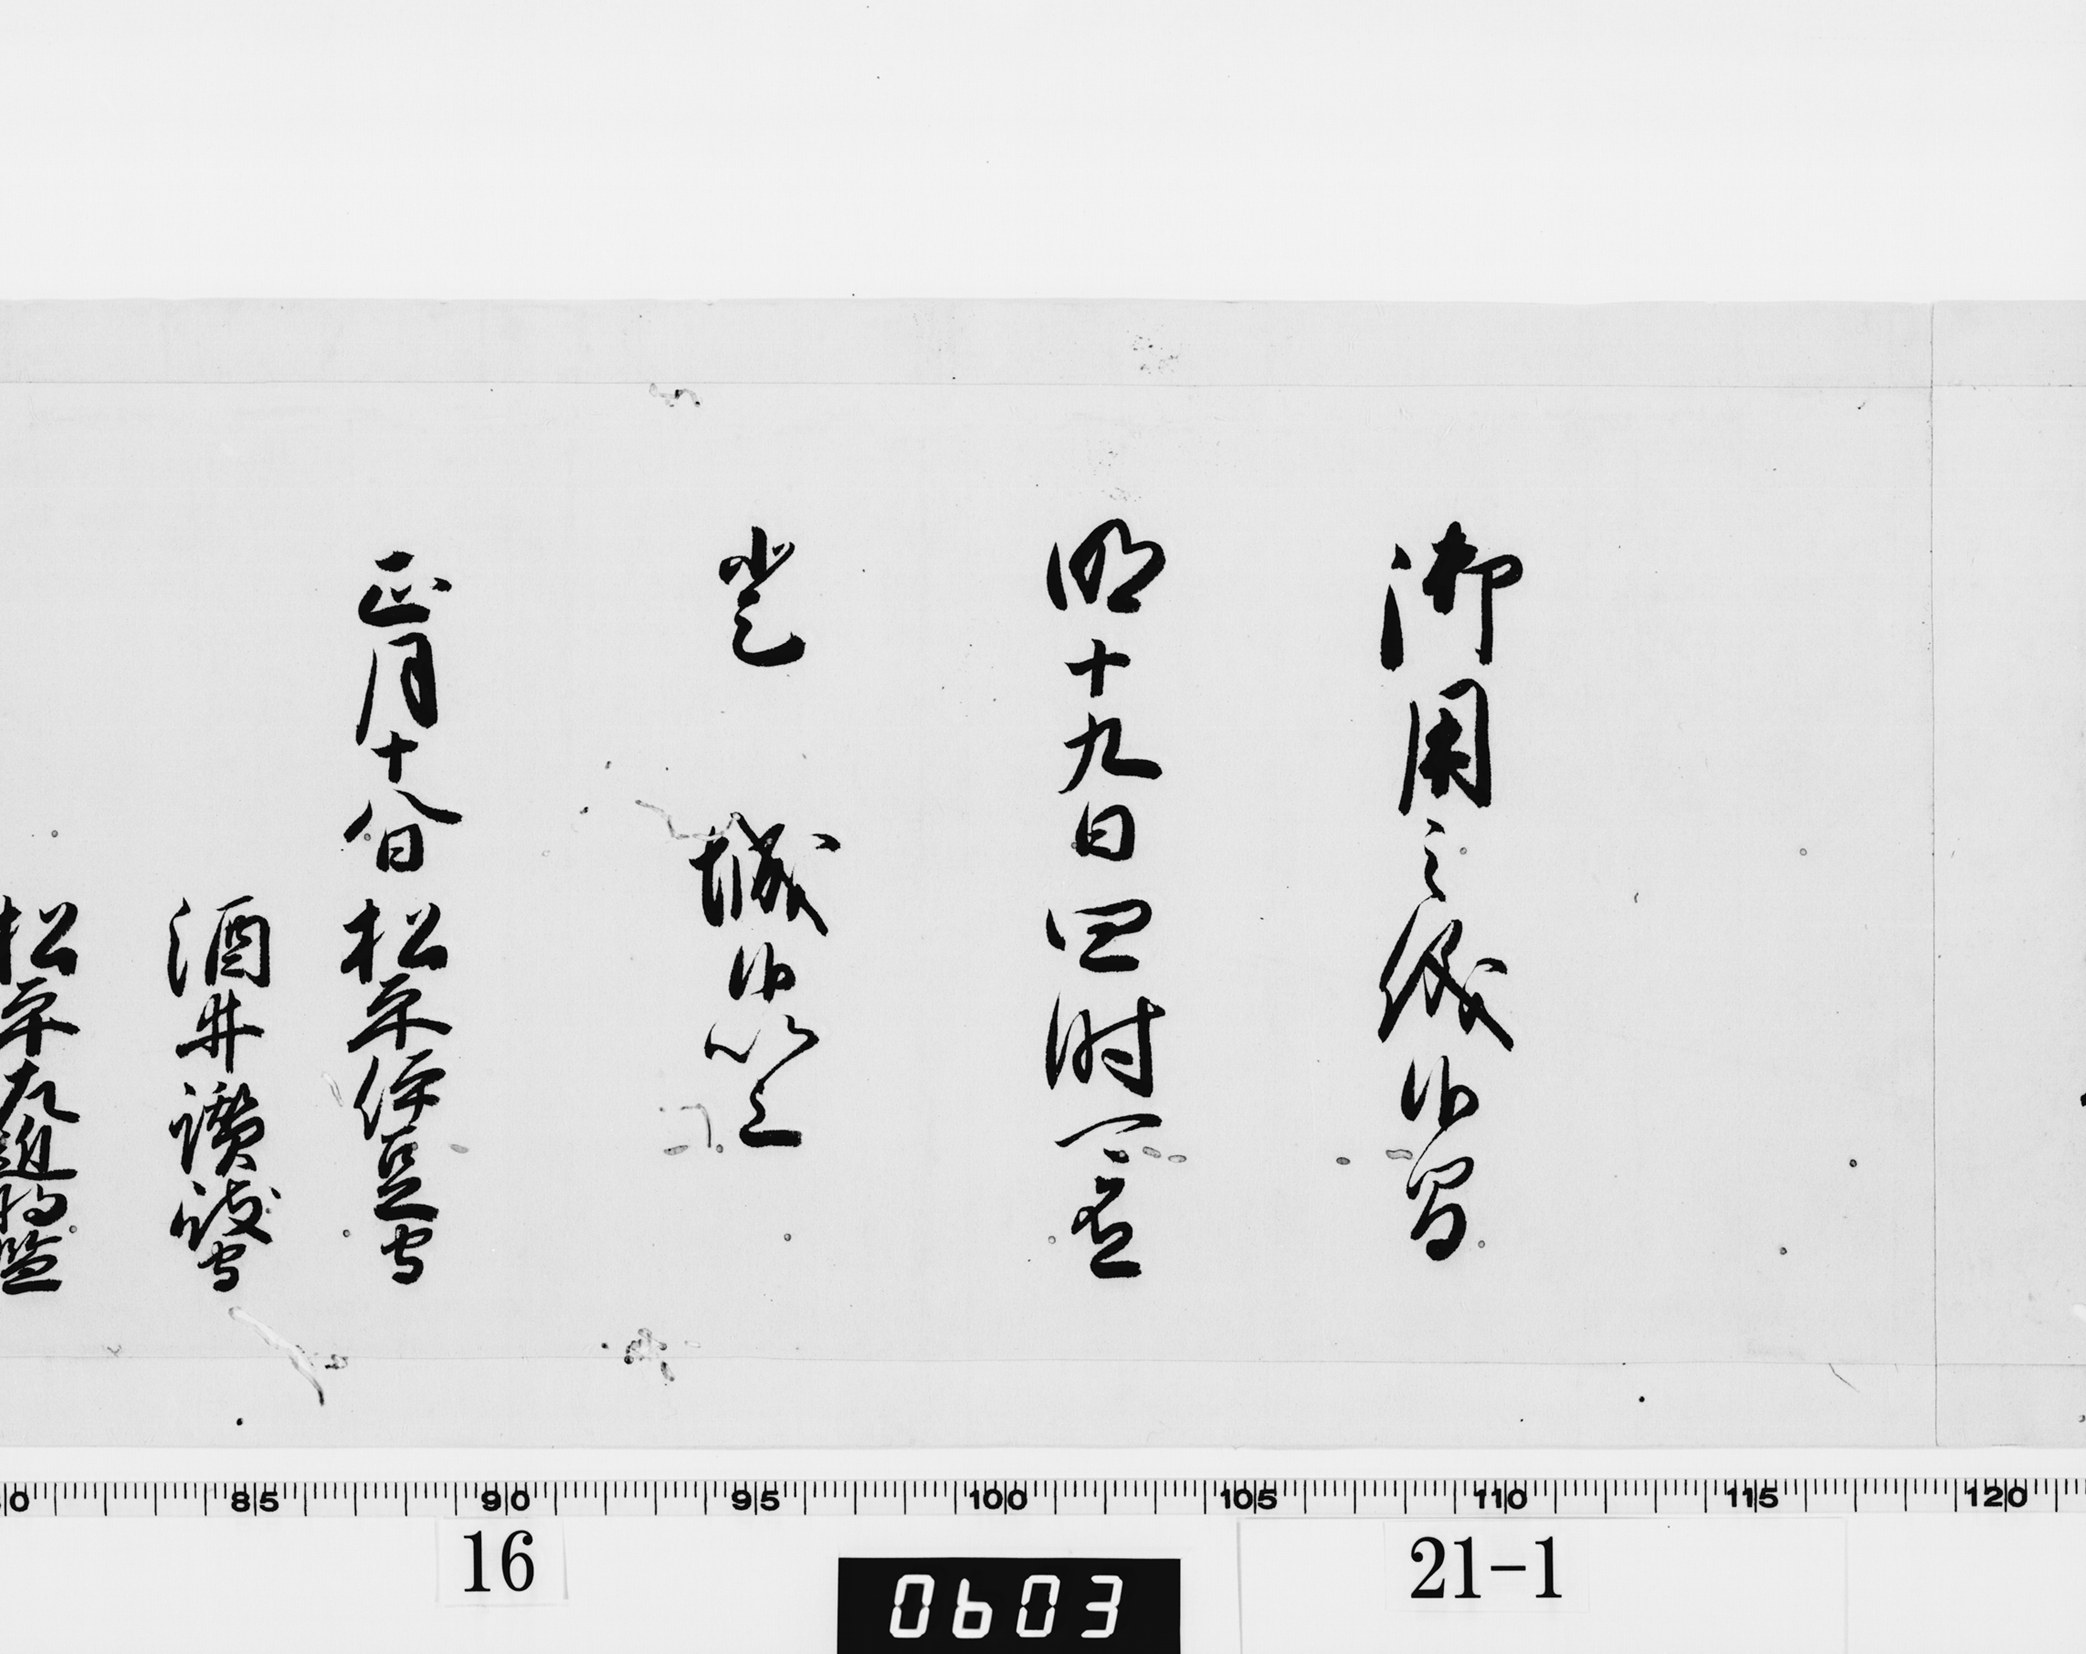 御用之儀候間
明十九日四時可有
登 城候以上
正月十八日 松平伊豆守
酒井讃岐守
松平右近将監
80 85 90 95 100 105 110 115 120
16
0603
21-1